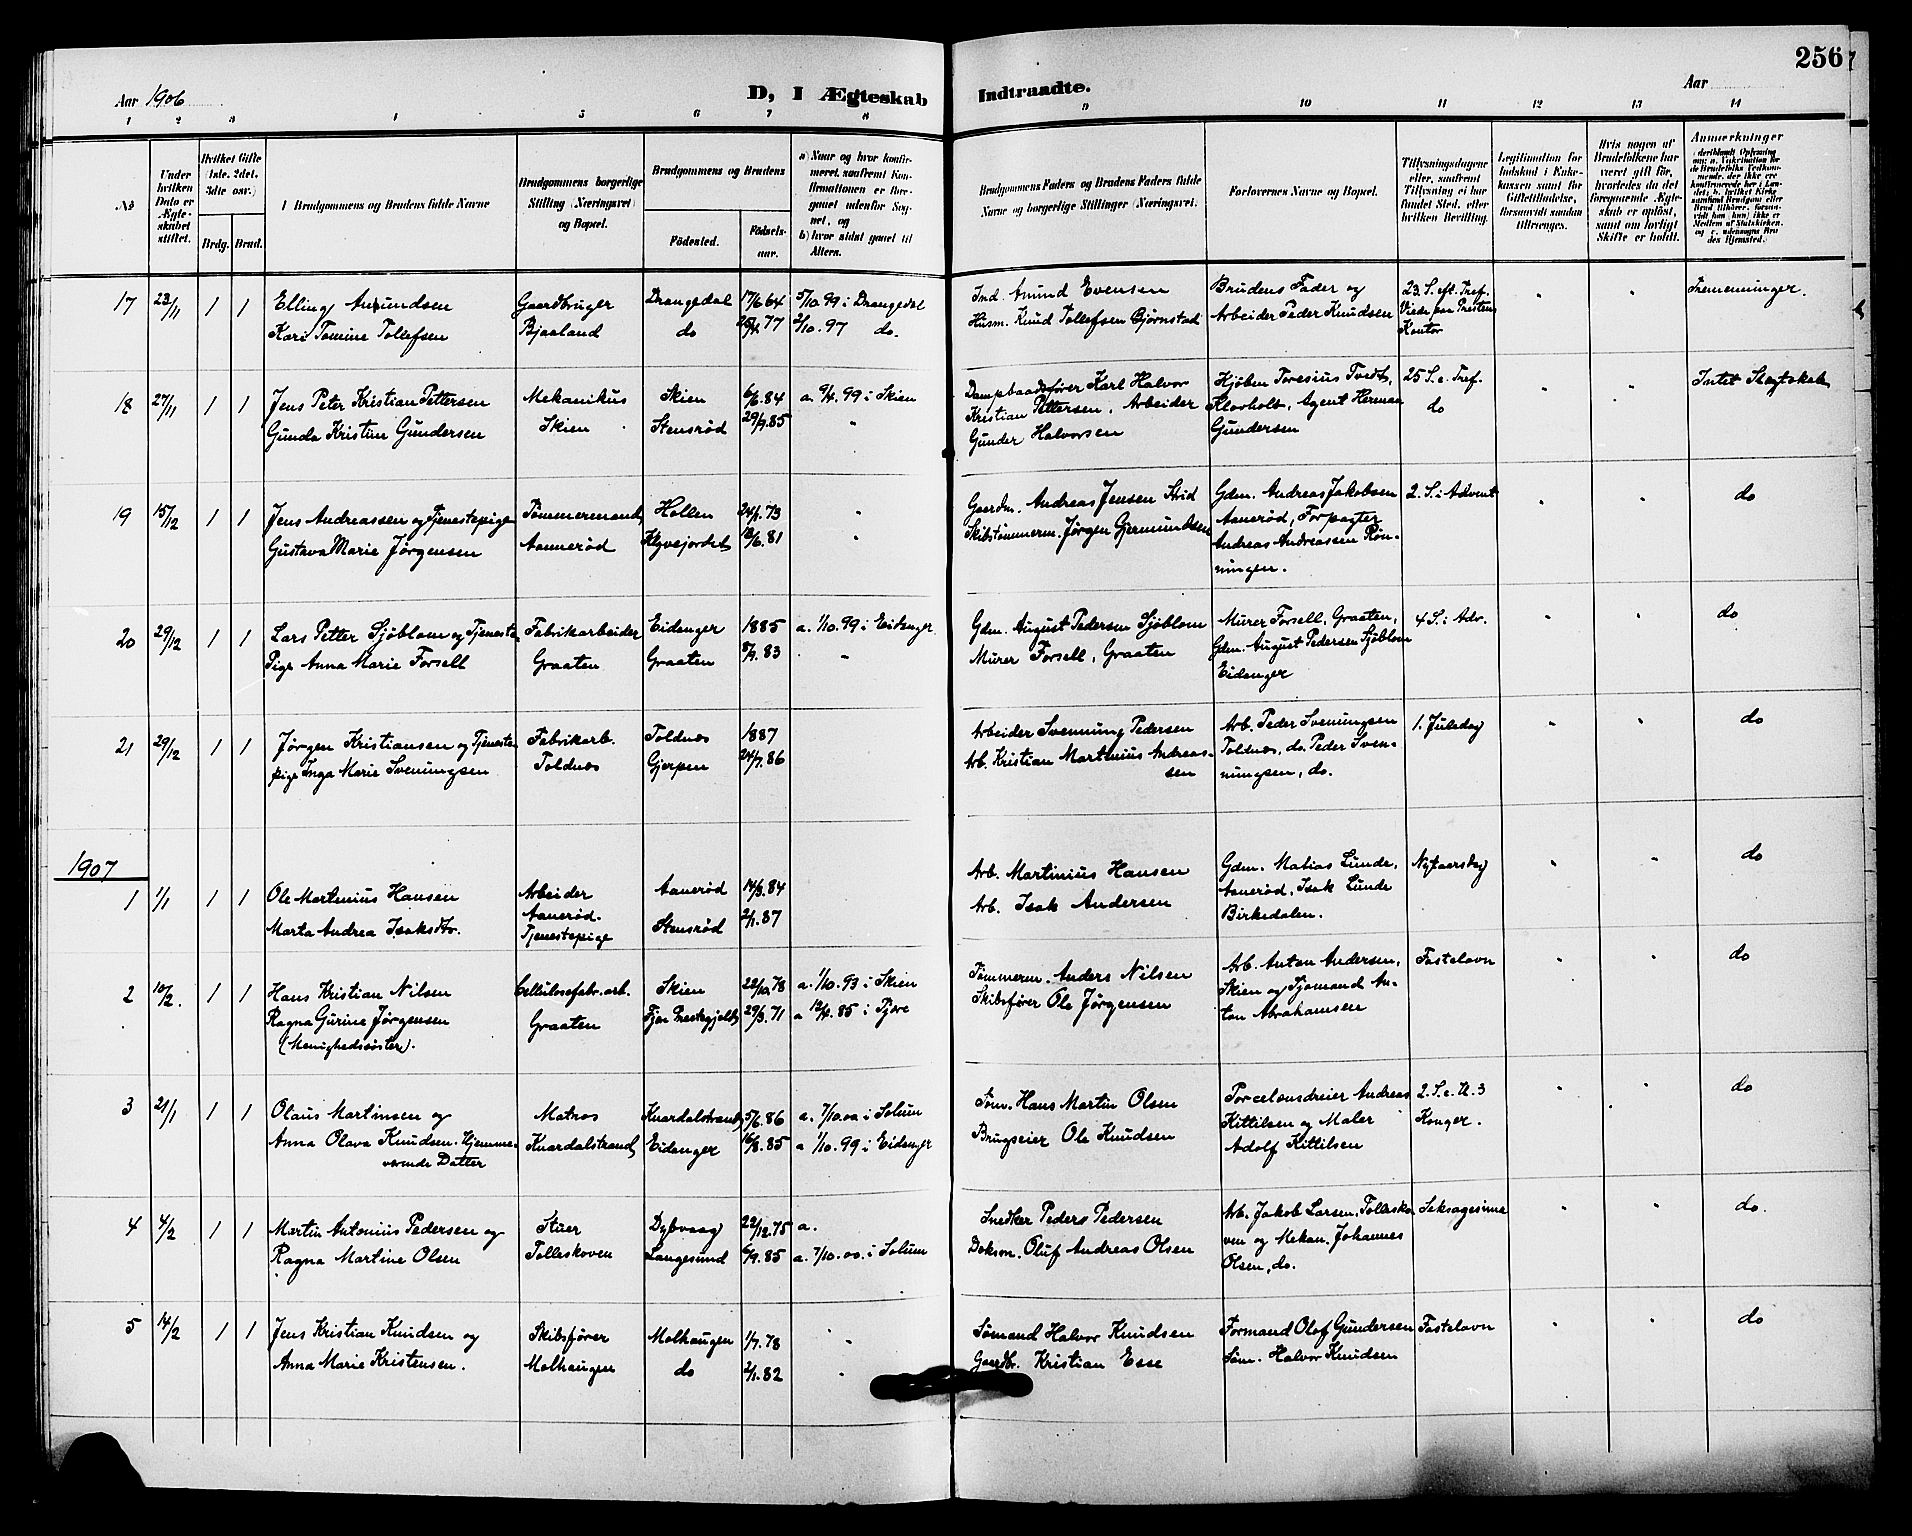 256
Aar 1906
D, I Ægteskab
Indtraadte.
Aar
1 2 3 4 5 6 7 8
9 10 11 12 13 14
No
Under hvilken Dato er Ægteskabet stiftet.
Hvilket Gifte (1ste, 2det, 3die osv.)
Brdg. Brud.
Brudgommens og Brudens fulde Navne
Brudgommens borgerlige Stilling (Næringsvei) og Bopæl.
Brudgommens og Brudens
Fødested.
Fødselsaar.
a) Naar og hvor konfirmeret, saafremt Konfirmationen er foregaaet udenfor Sognet, og
b) hvor sidst gaaet til Alters.
Brudgommens Faders og Brudens Faders fulde Navne og borgerlige Stillinger (Næringsvei).
Forlovernes Navne og Bopæl.
Tillysningsdagene eller, saafremt Tillysning ei har fundet Sted, efter hvilken Bevilling.
Legitimation for Indskud i Enkekassen samt for Giftetilladelse, forsaavidt saadan tiltrænges.
Hvis nogen af Brudefolkene har været gift før, hvorledes da det foregaaende Ægteskab er opløst, samt om lovligt Skifte er holdt.
Anmerkninger
17 23/11 1 1 Elling Amundsen Gaardbruger Drangedal 17/6 64 5/10.99 i Drangedal Ind. Amund Evensen Brudens Fader og 23. S. eft. Tref. " " Tremenninger.
Kari Tomine Tollefsen Bjaaland do 77 2/10. 97 do. Husm. Knud Tollefsen Bjørnstad Arbeider Peder Knudsen Viede paa Prestens
Kontor
18 27/11 1 1 Jens Peter Kristian Pettersen Mekanikus Skien 6/6.84 a. 9/4.99 i Skien Dampbaadsfører Karl Halvor Kjøben Toresius Tvedt, 25 S. e. Tref. " " Intet Slegtskab
Gunda Kristine Gundersen Skien Stensrød 29/7.85 " Kristian Pettersen, Arbeider Klovholt, Agent Herman do
Gunder Halvorsen Gundersen
19 15/12 1 1 Jens Andreassen og Tjenestepige Tømmermand Hollen 24/1.73 " Gaardm. Andreas Jensen Strid Gdm. Andreas Jakobsen 2. S. i Advent " " do
Gustava Marie Jørgensen Aanerød Klyvejordet 12/6.81 " Skibstømmerm. Jørgen Gjermundsen Aanerød, Forpagter
Andreas Andreassen Røn-
ningen.
20 29/12 1 1 Lars Petter Sjøblom og Tjeneste- Fabrikarbeider Eidanger 1885 a. 1/10.99 i Eidanger Gdm. August Pedersen Sjøblom Murer Forsell, Graaten, 4 S. i Adv. " " do
Pige Anna Marie Forsell Graaten Graaten 8/9.83 " Murer Forsell, Graaten Gdm. August Pedersen Sjøblom
Eidanger
21 29/12 1 1 Jørgen Kristiansen og Tjeneste- Fabrikarb. Toldnæs 1887 Arbeider Svennung Pedersen Arb. Peder Svenungsen 1. Juledag " " do
pige Inga Marie Svenungsen Toldnæs Gjerpen 24/7.86 Arb. Kristian Martinius Andreas- Toldnæs, do. Peder Sven-
sen nungsen, do.
1907
1 1/1 1 1 Ole Martinius Hansen Arbeider Aanerød 14/3.84 Arb. Martinius Hansen Gdm. Matias Lunde, Nytaarsdag " " do
Marta Andrea Isaksdtr. Aanerød. Stensrød 2/1.87 Arb. Isak Andersen Aanerød, Isak Lunde
Tjenestepige Birkedalen.
2 10/2. 1 1 Hans Kristian Nilsen Cellulosefabr. arb. Skien 22/10.78 a. 1/10.93 i Skien Tømmerm. Anders Nilsen Arb. Anton Andersen, Fastelavn " " do
Ragna Gurine Jørgensen Graaten Tjør Prestegjeld 29/3.71 a 12/4.85 i Tjøre Skibsfører Ole Jørgensen Skien og Sjømand An-
(Menighedssøster). ton Abrahamsen
3 21/1 1 1 Olaus Martinsen og Matros Knardalstrand 5/6.86 a. 7/10.00 i Solum Søm. Hans Martin Olsen Porcelænsdreier Andreas 2. S. e. H. 3 " " do
Anna Olava Knudsen. Hjemme- Knardalstrand Eidanger 16/8.85 a 1/10.99 i Eidanger Brugseier Ole Knudsen Kittilsen og Maler Konger.
værende Datter Adolf Kittilsen
4 4/2 1 1 Martin Antonius Pedersen og Stuer Dybvaag 22/12.75 a. Snedker Peder Pedersen Arb. Jakob Larsen, Tollesko- Seksagesima " " do.
Ragna Martine Olsen Tolleskoven Langesund 6/9.85 a. 7/10.00. i Solum Doksm. Oluf Andreas Olsen ven og Mekan. Johannes
Olsen, do.
5 14/2 1 1 Jens Kristian Knudsen og Skibsfører Molhaugen 1/7.78 " Sømand Halvor Knudsen Formand Olof Gundersen Fastelavn " " do
Anna Marie Kristensen. Molhaugen do 2/1.82 " Gaardbr. Kristian Esse Søm. Halvor Knudsen